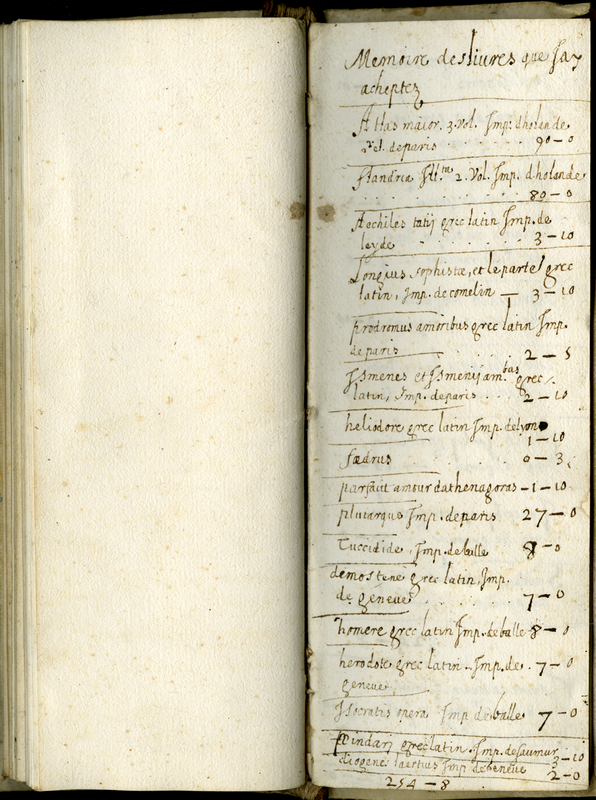 Memoire des livres que Jay
acheptez
Atlas maior. 3. Vol. Imp. dholande
rel. de paris . . . . . . 90-0
flandria Ill.ta 2. Vol. Imp. dholande
. . . . . . . . . 80-0
Aechiles tatij grec latin Imp. de
leyde . . . . . . 3-10
Longius sophistæ, et le parte grec
latin, Imp. de comelin — 3-10
prodromus amoribus grec latin Imp.
de paris . . . . 2-5
Ismenes et Ismenij am.bus grec.
latin, Imp. de paris . . . 2-10
heliodore grec latin Imp. de lyon
1-10
fædrus . . . . . 0-3
parfait amour dathenagoras -1-10
plutarque Imp. de paris 27-0
Tuccidide, Imp. de balle 8-0
demostene grec latin, Imp.
de geneve . . . . 7-0
homere grec latin Imp. de balle 8-0
herodote grec latin. Imp. de . 7-0
geneve
Isocratis opera Imp de balle 7-0
Pindarj grec latin. Imp. de saumur
3-10
diogene laertius Imp de Geneve 2-0
254-8